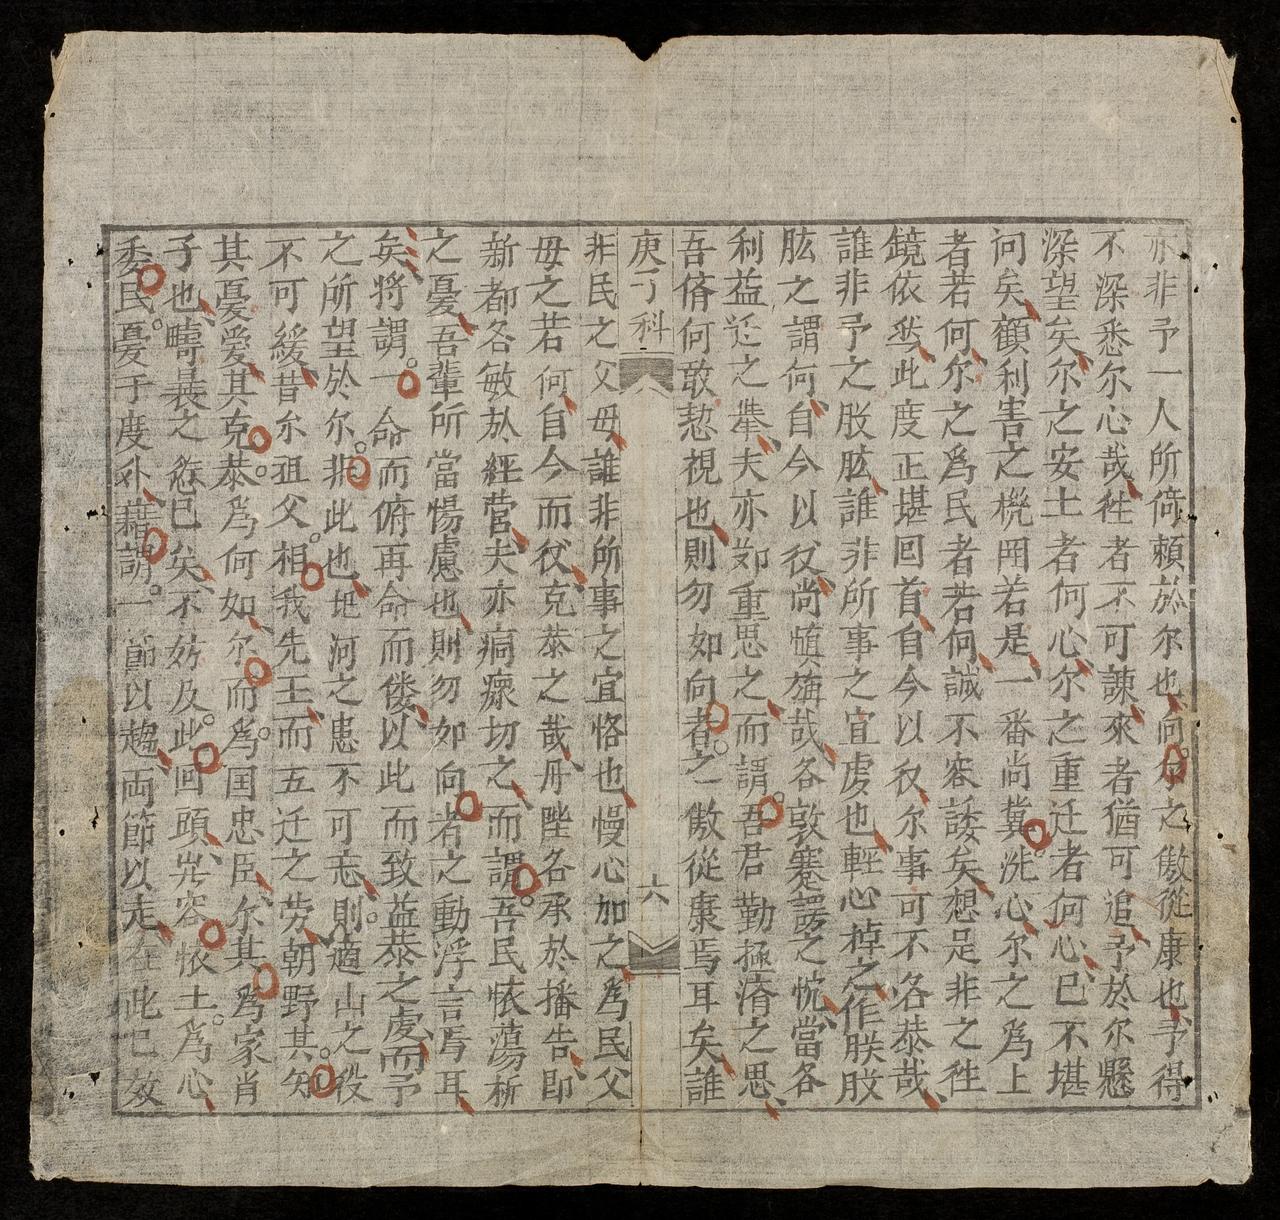 亦非予一人所倚賴於尔也向尔之傲從康也予得
不深悉尔心哉徃者不可諫來者猶可追予於尔懸
深望矣尔之安土者何心尔之重迁者何心已不堪
问矣顧利害之機囬若是一番尚冀洗心尔之為上
者若何尔之為民者若何誠不容諉矣想足非之徃
鏡依然此度正堪回首自今以後尔事可不各恭哉
誰非予之股肱誰非所事之宜虔也輕心掉之作朕股
肱之謂何自今以後尚慎旃哉各敦蹇諤之忱當各
利益迁之舉夫亦郑重思之而謂吾君勤極濟之思
吾脩何敢愬視也則勿如向者之傲從康焉耳矣誰
庚子科
六
非民之父母誰非所事之宜恪也慢心加之為民父
母之若何自今而後克恭之哉丹陛名承於播告即
新都各敏於經营夫亦痌瘝切之而謂吾民恔蕩析
之憂吾輩所當惕慮也則勿如向者之動浮言焉耳
矣將謂一命而俯再命而偻以此而致益恭之處而予
之所望於尔非此也圯河之患不可忘則適山之役
不可緩昔尔祖父相我先王而五迁之劳朝野其知
其憂爱其克恭為何如尔而為国忠臣尔其為家肖
子也疇曩之愆已矣不妨及此回頭共容怀土為心
委民憂于度外藉謂一節以趨両節以走在此已效